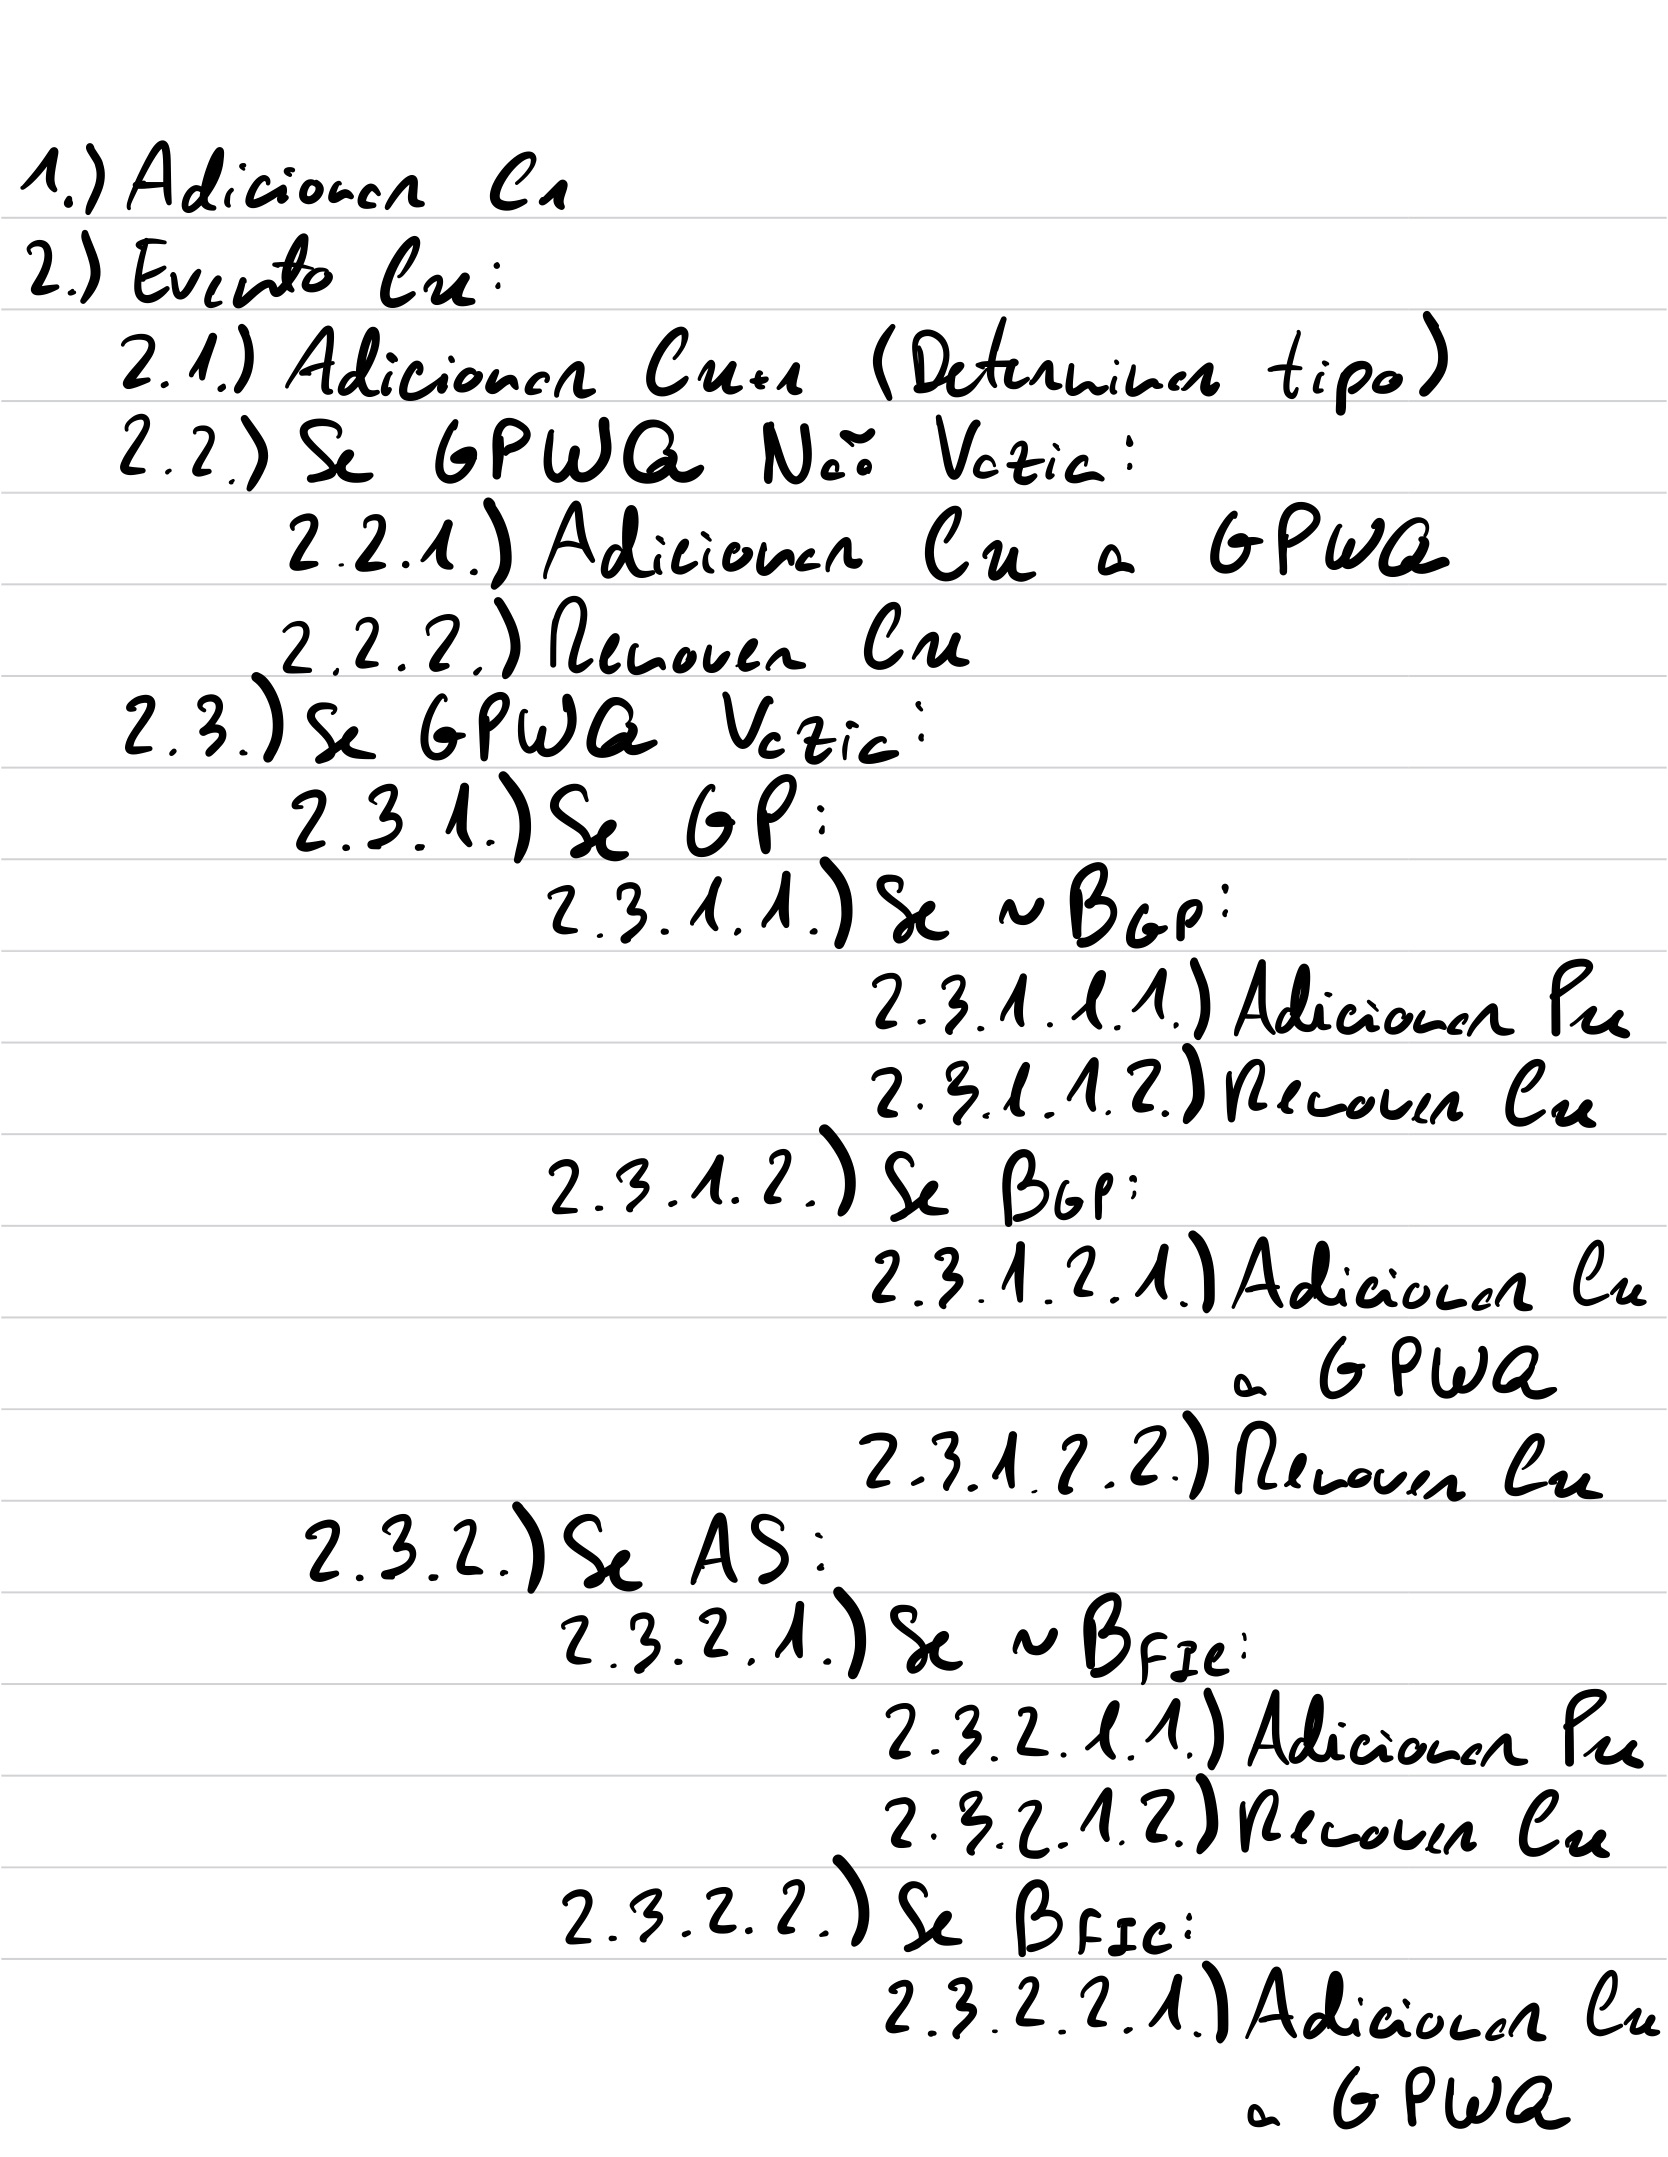 1.) Adicionar C1
2.) Evento Cn:
2.1.) Adicionar Cn+1 (Determinar tipo)
2.2.) Se GPWQ Não Vazia:
2.2.1.) Adicionar Cn a GPWQ
2.2.2.) Remover Cn
2.3.) Se GPWQ Vazia:
2.3.1.) Se GP:
2.3.1.1.) Se ~ BGP:
2.3.1.1.1.) Adicionar Pn
2.3.1.1.2.) Remover Cn
2.3.1.2.) Se BGP:
2.3.1.2.1.) Adicionar Cn
a GPWQ
2.3.1.2.2.) Remover Cn
2.3.2.) Se AS:
2.3.2.1.) Se ~ BFIC:
2.3.2.1.1.) Adicionar Pn
2.3.2.1.2.) Remover Cn
2.3.2.2.) Se BFIC:
2.3.2.2.1.) Adicionar Cn
a GPWQ